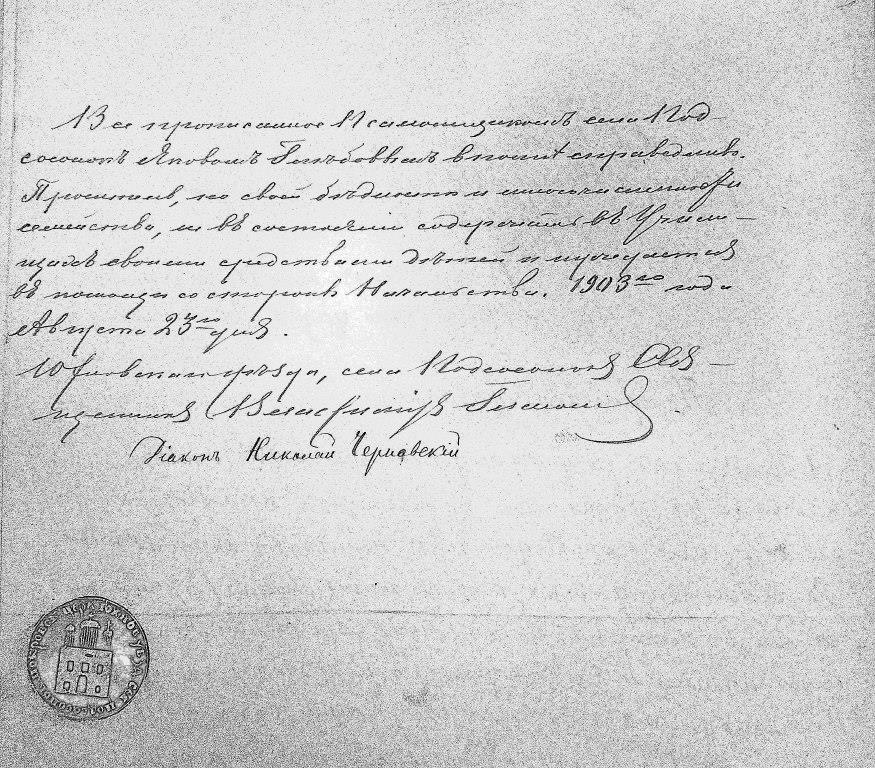 Все прописанное Псаломщикомъ села Под-
сосонокъ Яковомъ Голубовымъ вполнѣ справедливо.
Проситель, по своей бѣдности и многочисленности
семейства, не въ состоянiи содержать въ Учили-
щахъ своими средствами дѣтей и нуждается
въ помощи со стороны Начальства. 1903го года
Августа 23го дня.
уѣзда, села Подсосонокъ Свя-
щенникъ
Дiаконъ Николай Чернавскiй